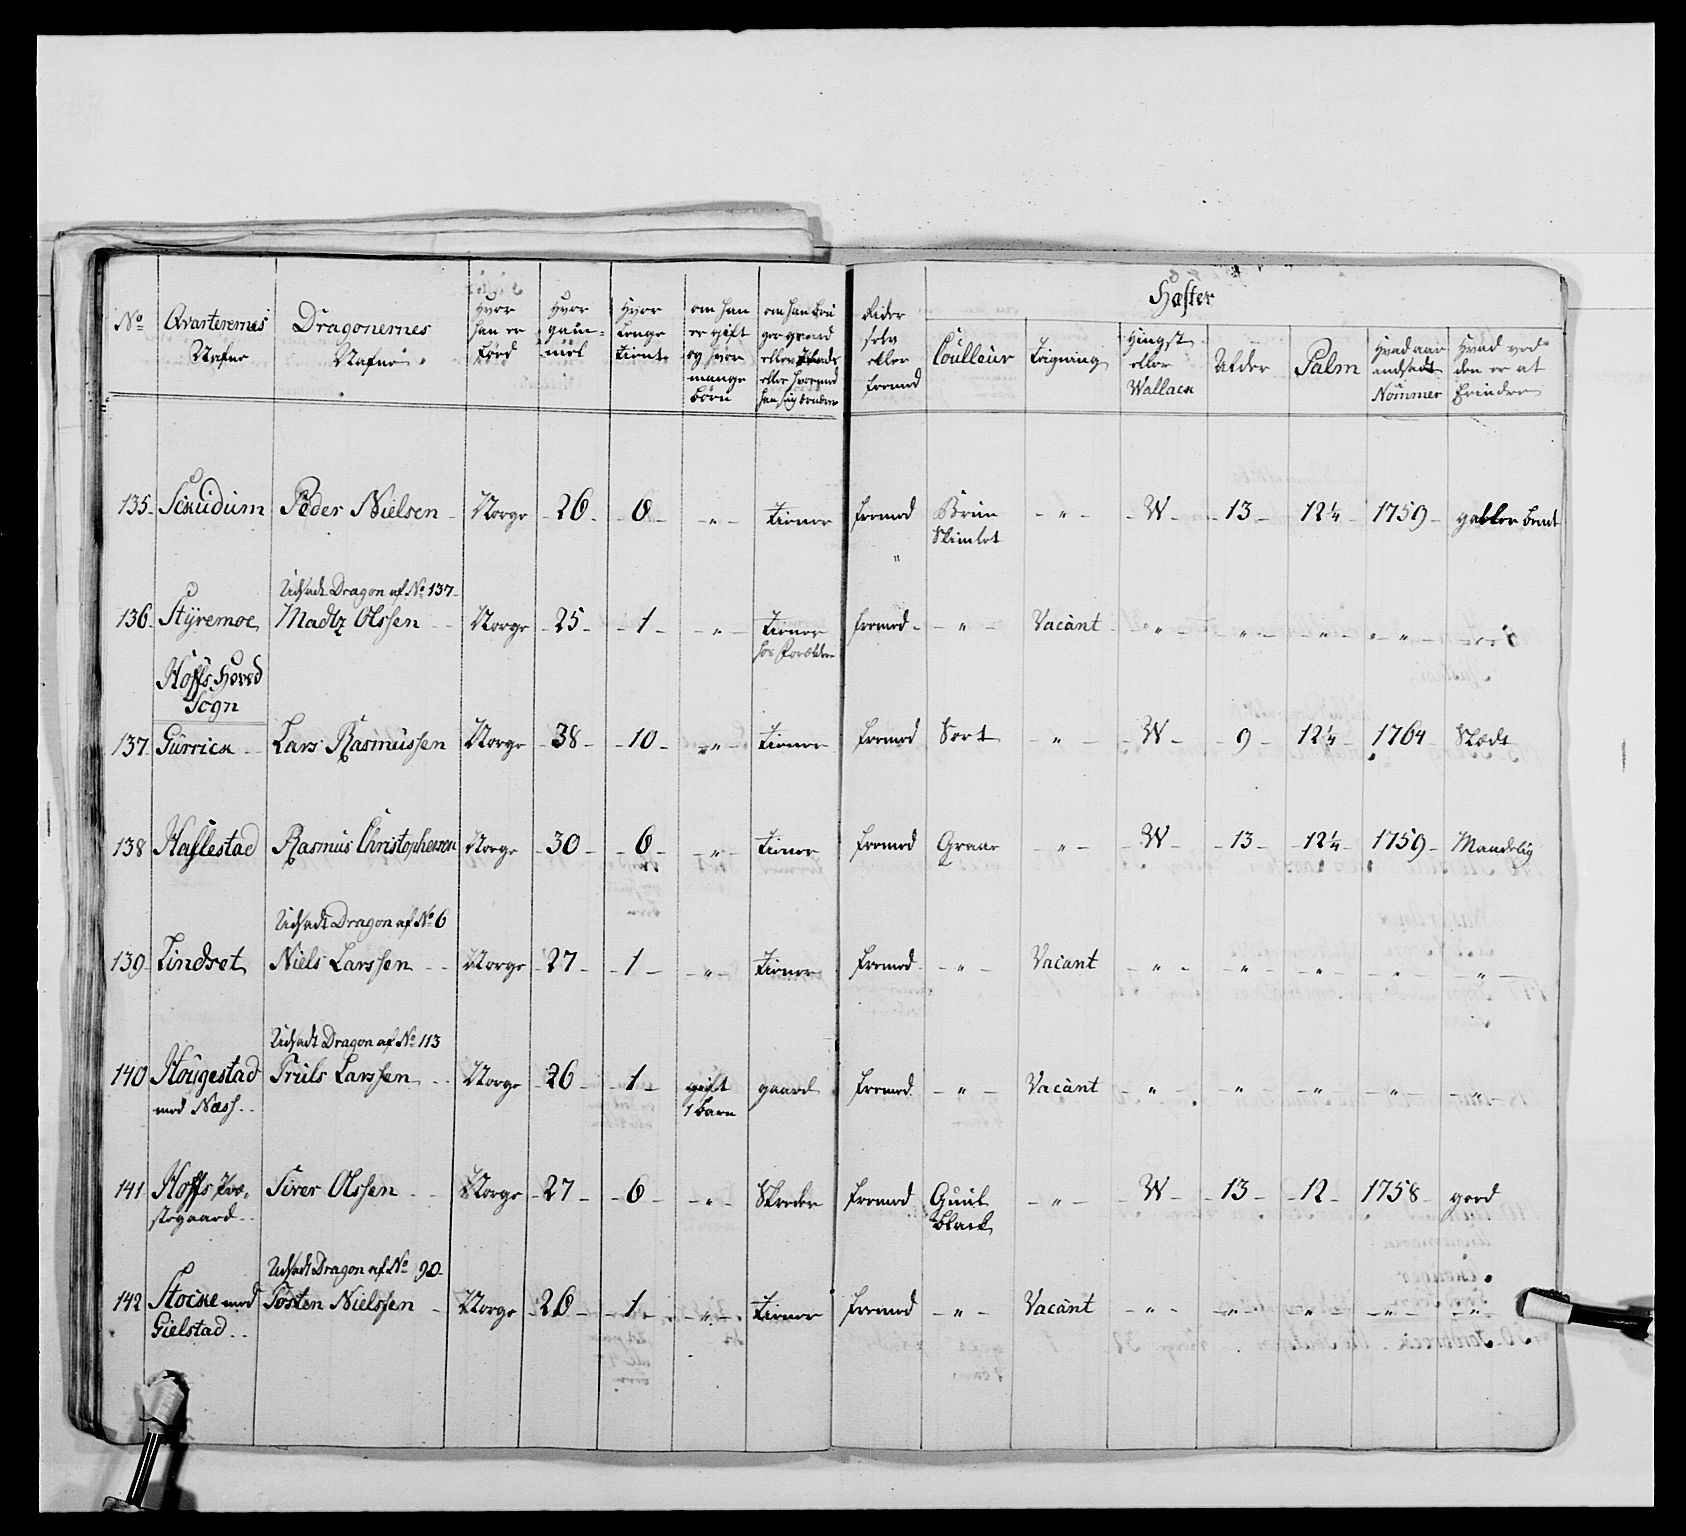 No
Qvarterernes
Nafne
Dragonernes
Nafne
Hvor
han er
Född
Hvor
gam=
mel
Hvor
Længe
Tient
om han
er gift
og hvor
mange
börn
Rider
selv
eller
fremed
Hæster
Coulleur
Teigning
Hingst
eller
Wallack
Alder
Palm
Hvad aar
andsadt
Nommer
Hvad ved
den er at
Erindre
135 Schudum Peder Nielsen Norge 26 6 " Tiener fremed Brun Skimlet " W 13 12¼ 1759
136 Styremoe Udsadt Dragon af No 137 Madtz Olssen Norge 25 1 " Tiener fremed " Vacant " " " "
Hoffs Hoved
Sogn
137 Gurrick Lars Rasmussen Norge 38 10 " Tiener fremed Sort " W 9 12¼ 1764
138 Haslestad Rasmus Christophersen Norge 30 6 " Tiener fremed Graae " W 13 12¼ 1759 Maadelig
139 Lindset Udsadt Dragon af No 6 Niels Larssen Norge 27 1 " Tiener fremed " Vacant " " " " "
140 Hougestad med Næss Udsadt Dragon af No 113 Truls Larssen Norge 26 1 gift 1 barn gaard fremed " Vacant " " " " "
141 Hoffs Præstegaard Siver Olssen Norge 27 6 " Skreder fremed Guul black " W 13 12 1758 god
142 Stocke med Gielstad Udsadt Dragon af No 90 Tosten Nielssen Norge 26 1 " Tiener fremed " Vacant " " " " "